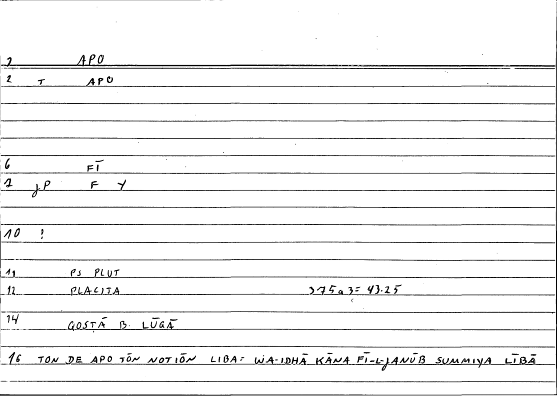 1 APO
2 T APO
6 FĪ
7 jP F Y
10 !
11 PS PLUT
12 PLACITA 375a3 = 43.25
14 QOSṬĀ B. LŪQĀ
16 TON DE APO TŌN NOTIŌN LIBA = WA-IDHĀ KĀNA FĪ-L-JANŪB SUMMIYA LĪBĀ